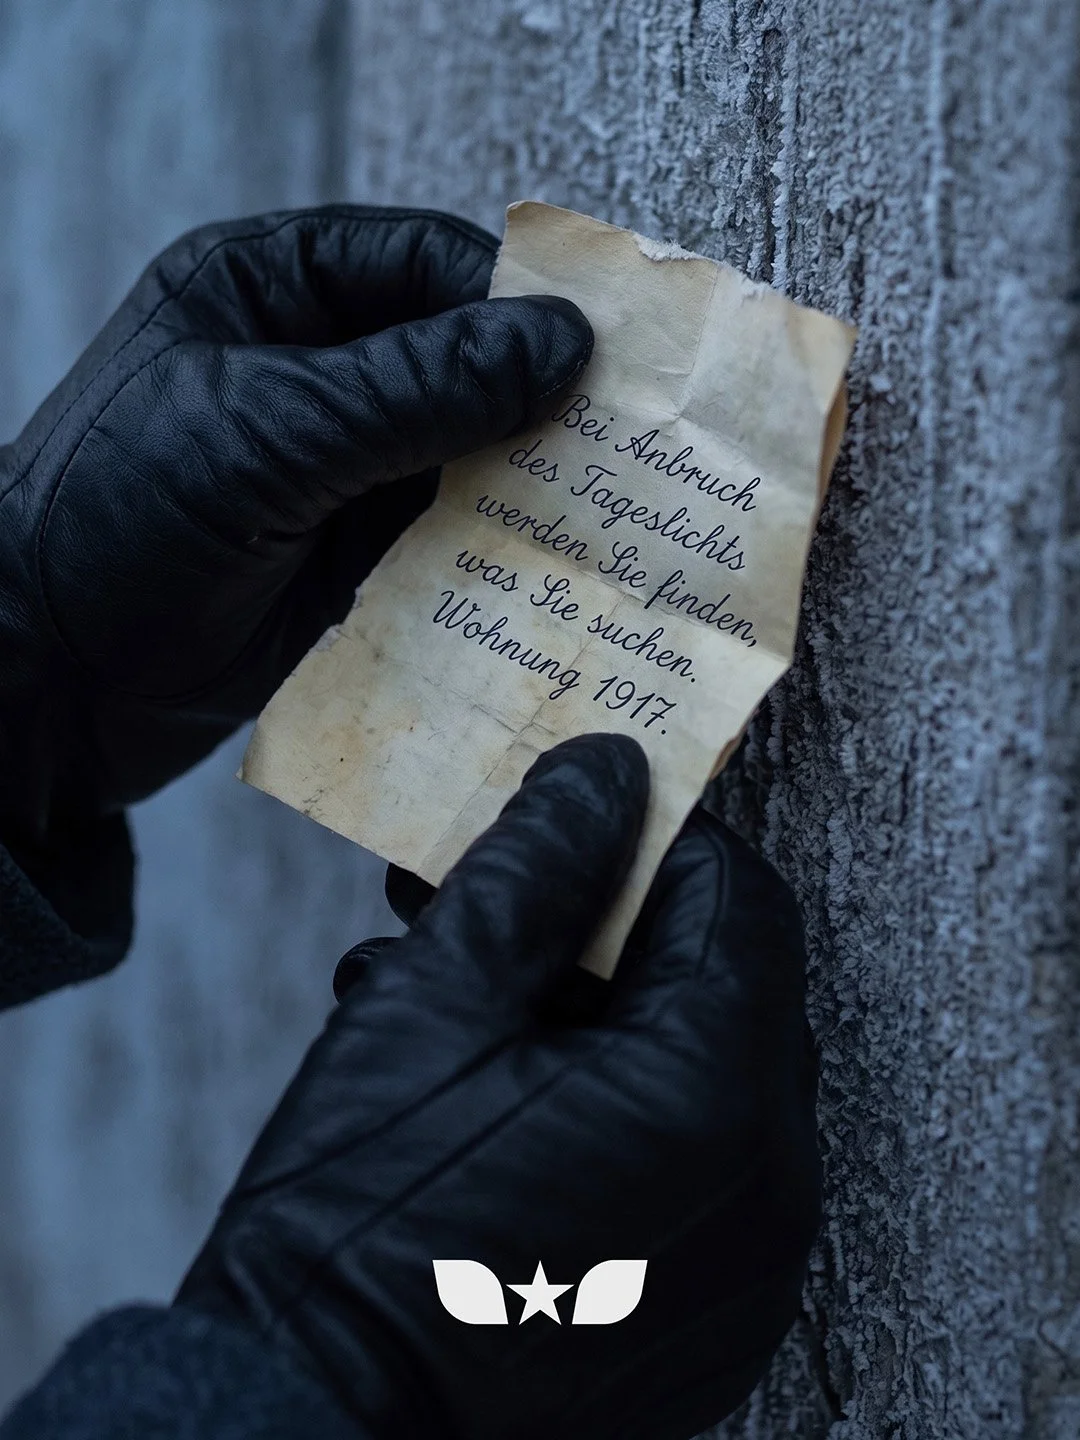 Bei Anbruch
des Tageslichts
werden Sie finden,
was Sie suchen.
Wohnung 1917.